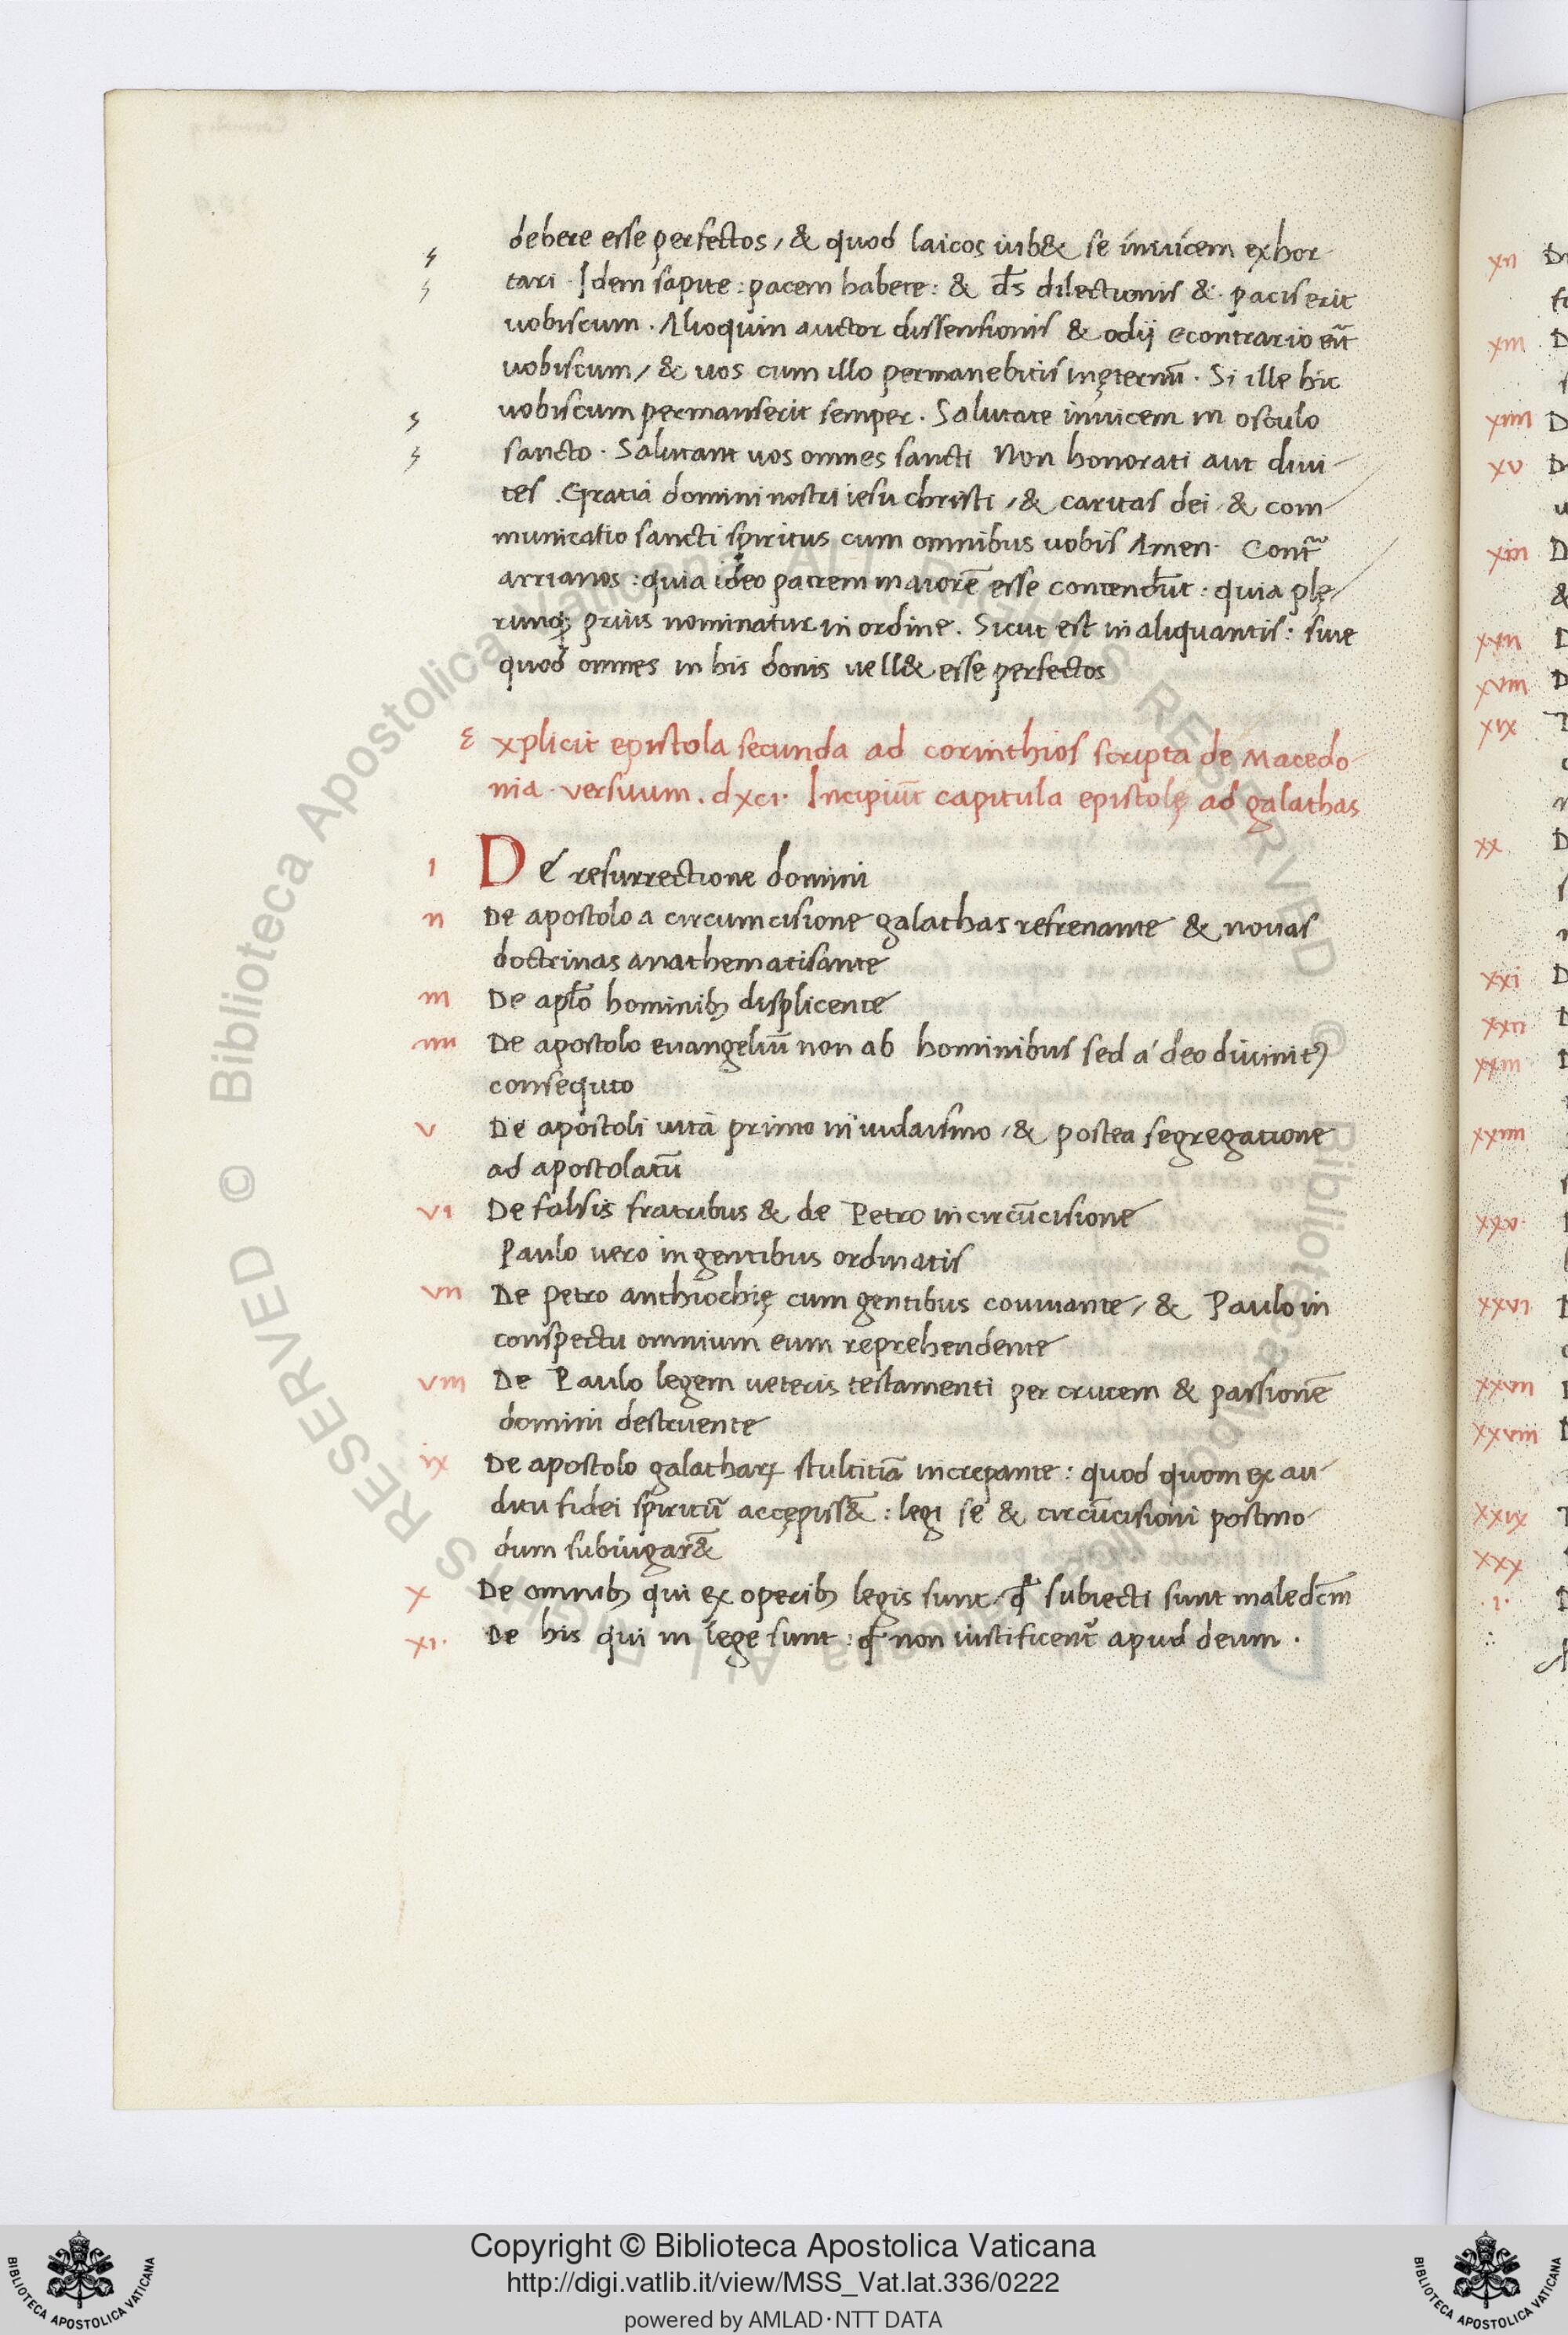 debere esse perfectos, & quod laicos iub& se inuicem exhor-
tari · Idem sapite : pacem habete : & d̅s dilectionis & pacis erit
uobiscum . Alioquin auctor dissensionis & odij econtrario er̅t
uobiscum, & uos cum illo permanebitis inęternū . Si ille hic
uobiscum permanserit semper . Salutate inuicem in osculo
sancto · Salutant uos omnes sancti Non honorati aut diui-
tes . Gratia domini nostri iesu christi , & caritas dei & com-
municatio sancti spiritus cum omnibus uobis Amen · Contr̃
arrianos : quia ideo patrem maiorē esse contendūt : quia plę-
runq; prius nominatur in ordine . Sicut est in aliquantis : siue
quod omnes in his donis uell& esse perfectos
Explicit epistola secunda ad corinthios scripta de Macedo-
nia · versuum . dxci · Incipiūt capitula epistolę ad galathas
I De resurrectione domini
II De apostolo a circumcisione galathas refrenante & nouas
doctrinas anathematisante
III De apl̅o hominibꝫ displicente
IIII De apostolo euangeliū non ab hominibus sed a deo diuinitꝰ
consequto
V De apostoli uita primo in iudaismo , & postea segregatione
ad apostolatū
VI De falsis fratribus & de Petro in circūcisione
Paulo uero in gentibus ordinatis
VII De petro anthiochię cum gentibus conuiuante, & Paulo in
conspectu omnium eum reprehendente
VIII De Paulo legem ueteris testamenti per crucem & passionē
domini destruente
ix De apostolo galatharꝝ stultitiā increpante : quod quom ex au-
ditu fidei spiritū accępiss& : legi se & circūcisioni postmo-
dum subiugar&
X De omnibꝫ qui ex operibꝫ legis sunt, qd̅ subiecti sunt maledc̅m
XI · De his qui in lege sunt : qd̅ non iustificent̃ apud deum .
xii
xiii
xiiii
xv
xvi
xvii
xviii
xix
xx
xxi
xxii
xxiii
xxiiii
xxv
xxvi
xxvii
xxviii
xxix
xxx
· i ·
© Biblioteca Apostolica Vaticana ALL RIGHTS RESERVED © Biblioteca Apostolica Vaticana ALL RIGHTS RESERVED
BIBLIOTECA APOSTOLICA VATICANA
Copyright © Biblioteca Apostolica Vaticana
http://digi.vatlib.it/view/MSS_Vat.lat.336/0222
powered by AMLAD·NTT DATA
BIBLIOTECA APOSTOLICA VATICANA